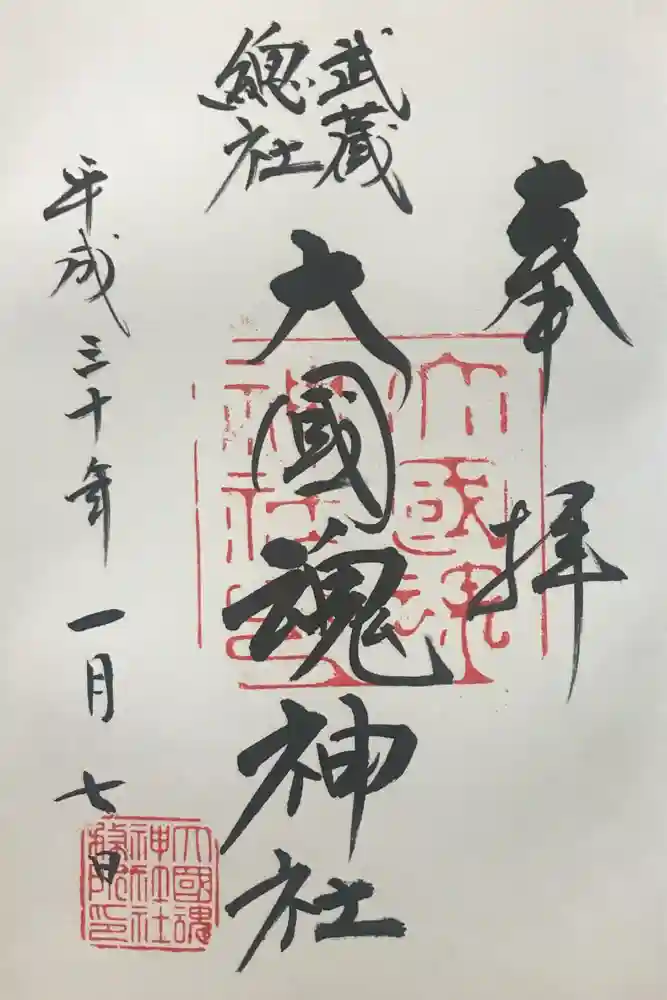 奉拝
武蔵
總社
大國魂神社
平成三十年一月七日
大國魂
神社
大國魂
神社